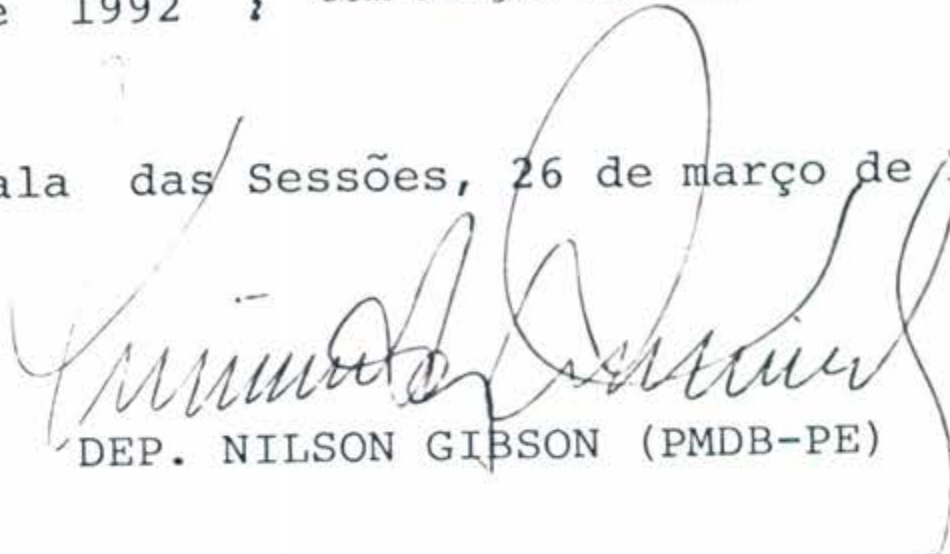 e 1992 ?
ala das Sessões, 26 de março de
DEP. NILSON GIBSON (PMDB-PE)